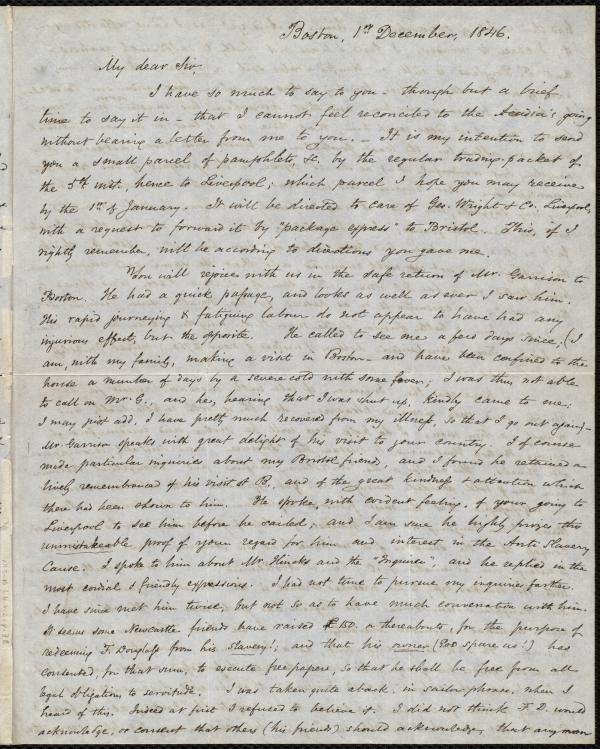 Boston, 1st December, 1846.
My dear Sir,
I have so much to say to you - though but a brief
time to say it in - that I cannot feel reconciled to the Acadia's going
without bearing a letter from me to you. - It is my intention to send
you a small parcel of pamphlets, &c. by the regular trading-packet of
the 5th inst. hence to Liverpool; which parcel I hope you may receive
by the 1st of January. It will be directed to care of Geo. Wright & Co. Liverpool,
with a request to forward it by "package express" to Bristol. This, if I
rightly remember, will be according to directions you gave me.
You will rejoice with us in the safe return of Mr. Garrison to
Boston. He had a quick passage, and looks as well as ever I saw him.
His rapid journeying & fatiguing labour do not appear to have had any
injurious effect, but the opposite. He called to see me a few days since, (I
am, with my family, making a visit in Boston - and have been confined to the
house a number of days by a severe cold with some fever; I was thus not able
to call on Mr G., and he, hearing that I was shut up, kindly came to me;
I may just add, I have pretty much recovered from my illness, so that I go out again) -
Mr Garrison speaks with great delight of his visit to your country. I of course
made particular inquiries about my Bristol friends, and I found he retained a
lively remembrance of his visit at B., and of the great kindness & attention which
there had been shown to him. He spoke, with evident feeling, of your going to
Liverpool to see him before he sailed; and I am sure he highly prizes this
unmistakeable proof of your regard for him and interest in the Anti Slavery
Cause. I spoke to him about Mr. Hincks and the "Inquirer", and he replied in the
most cordial & friendly expressions. I had not time to pursue my inquiries farther.
I have since met him twice, but not so as to have much conversation with him.
It seems some Newcastle friends have raised £150. or thereabouts, for the purpose of
redeeming F. Douglass from his slavery!; and that his owner (God spare us!) has
consented, for that sum, to execute free papers, so that he shall be free from all
legal obligation to servitude. I was taken quite aback, in sailor phrase, when I
heard of this. Indeed at first I refused to believe it. I did not think F. D. would
acknowledge, or consent that others (his friends) should acknowledge, that any man